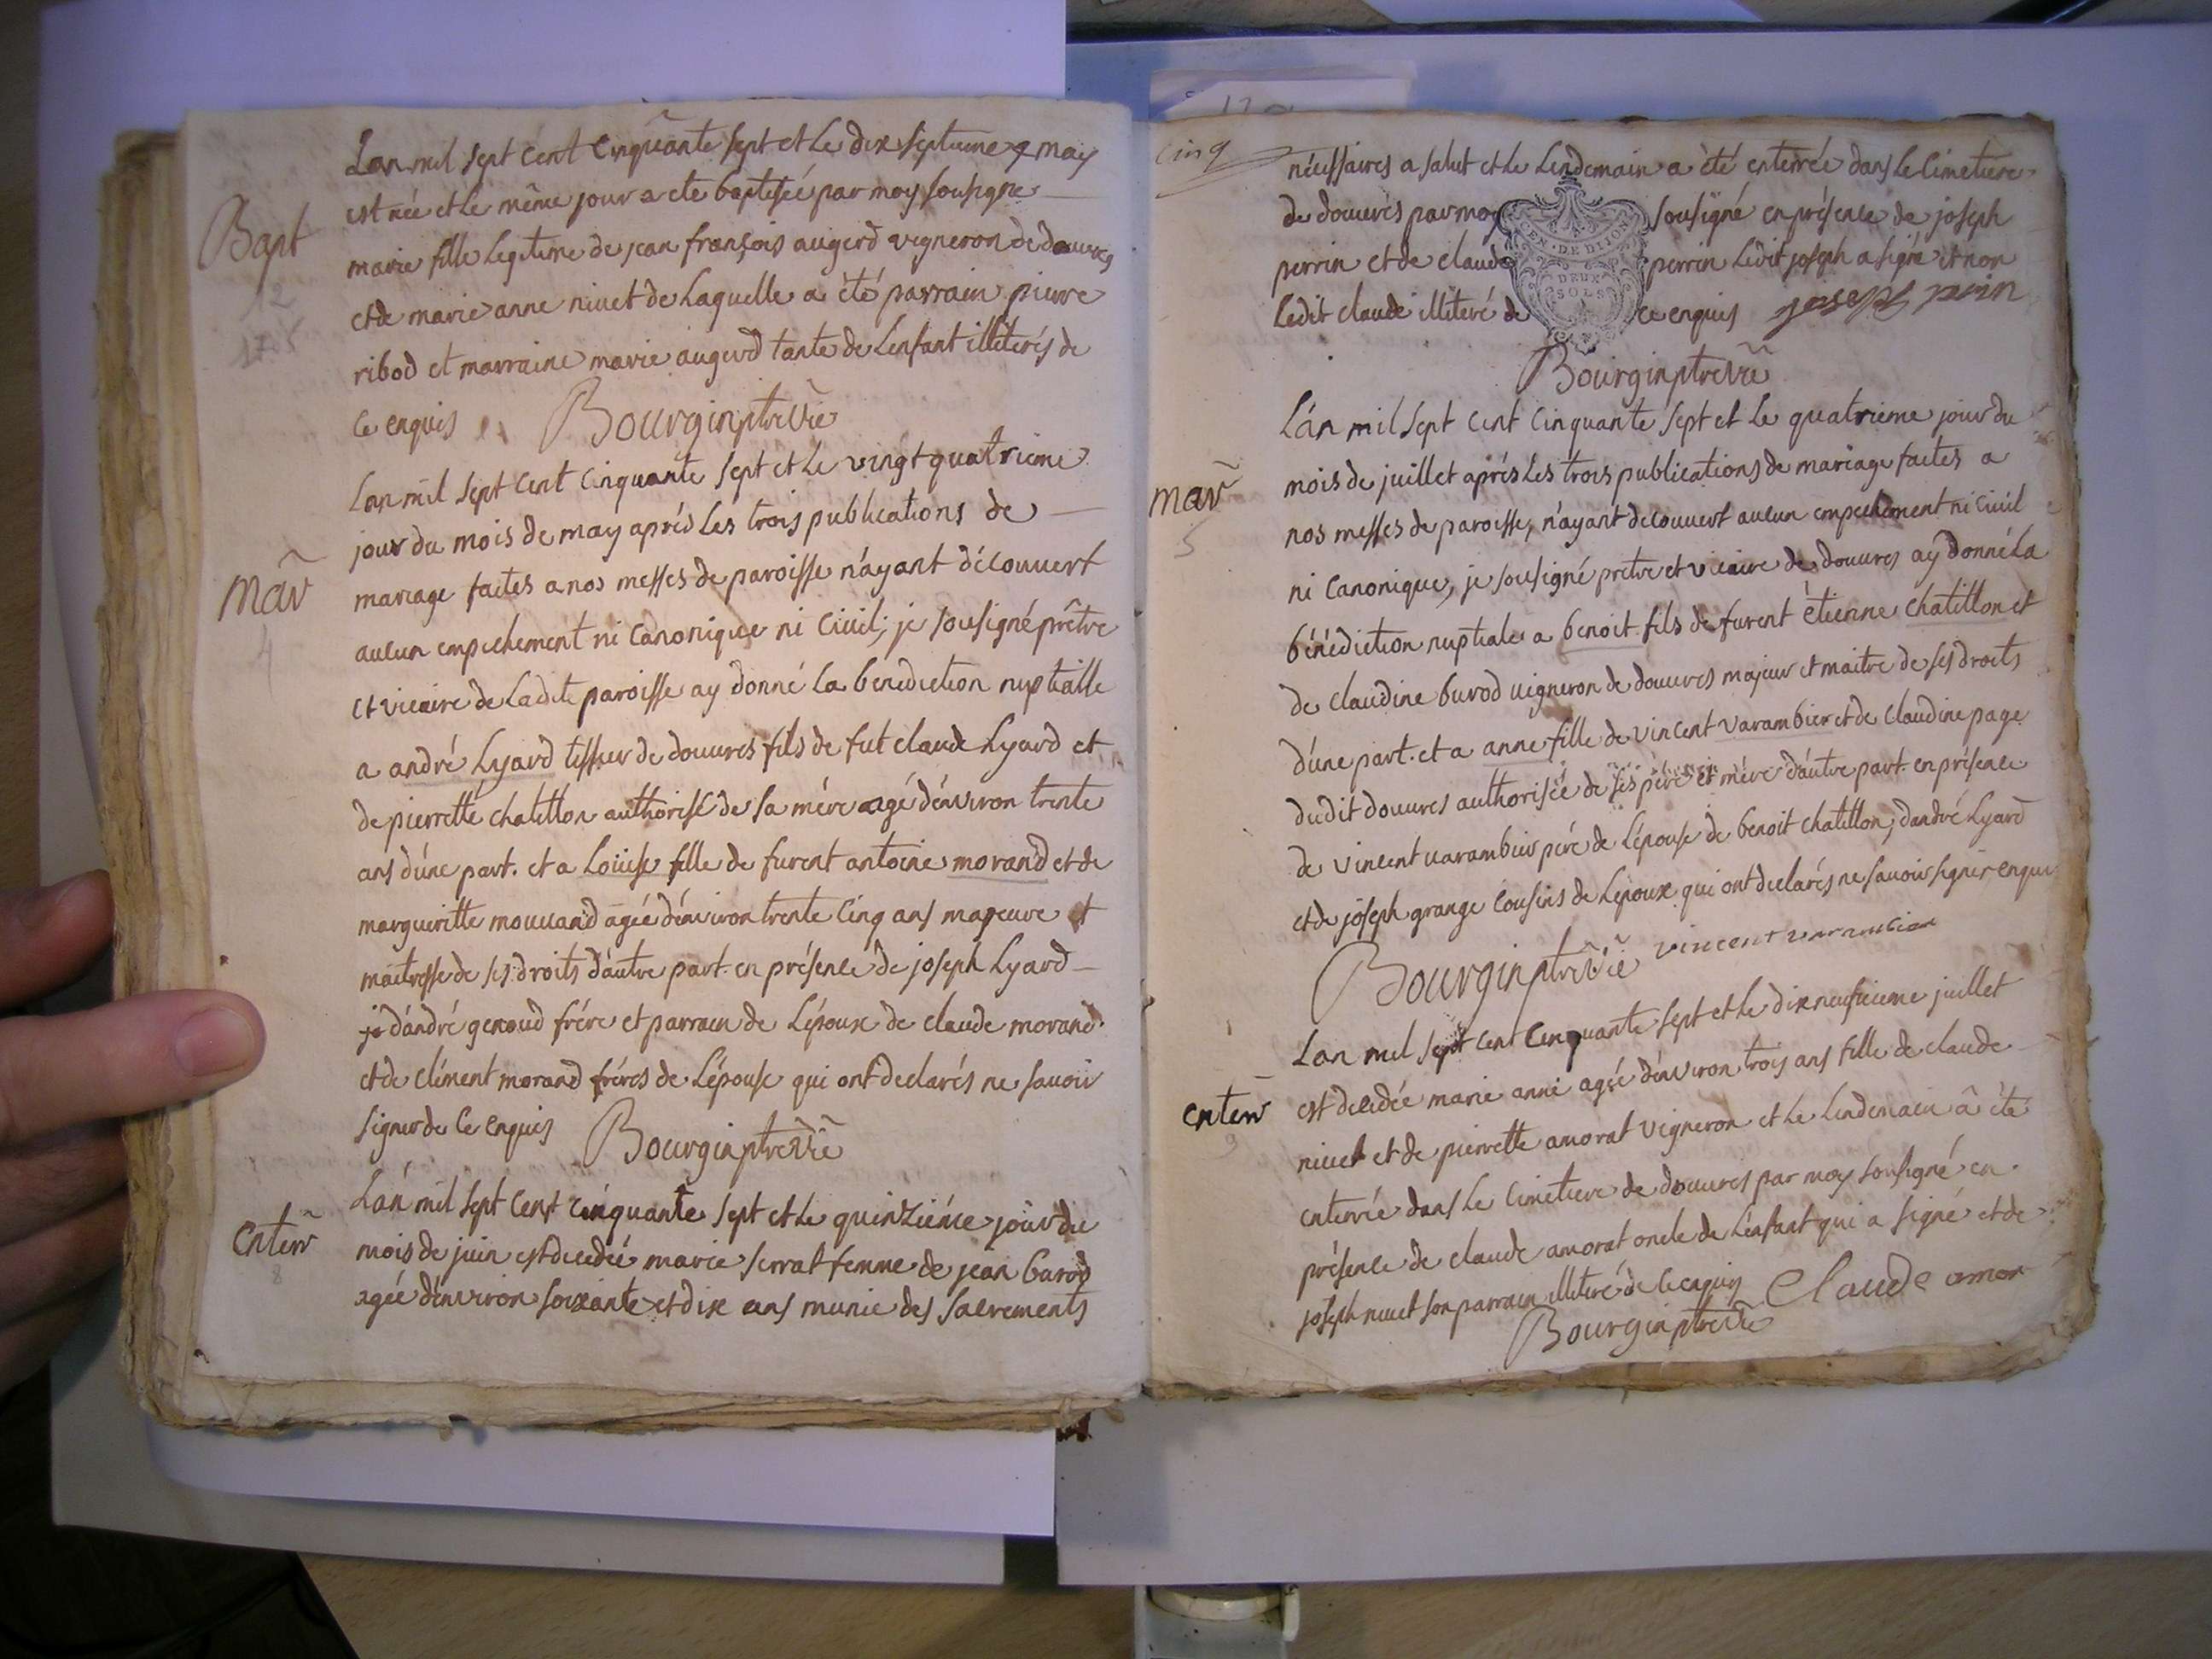 Lan mil sept cent cinquante sept et le dix septieme may
est née et le même jour a ete baptisée par moy sousigne
Bapt
marie fille legitime de jean françois augerd vigneron de douvres
et de marie anne nivet de laquelle a été parrain pierre
12
ribod et marraine marie augerd tante de Lenfant illiterés de
ce enquis Bourgin ptre vic
Lan mil sept cent cinquante sept et le vingt quatrieme
jour du mois de may aprés Les trois publications de
mar
mariage faites a nos messes de paroisse n'ayant découvert
4
aucun empechement ni canonique ni civil; je sousigné prêtre
et vicaire de ladite paroisse ay donné la benediction nuptialle
a andré Lyard tisseur de douvres fils de fut claude Lyard et
de pierrette chatillon authorisé de sa mére agé d'environ trente
ans d'úne part. et a Loüise fille de furent antoine morand et de
margueritte mouvand agée d'environ trente cinq ans majeure et
maitresse de ses droits d'áutre part en présence de joseph Lyard
jo d'andré genoud frére et parrain de L'époux de claude morand
et de clément morand fréres de L'épouse qui ont declarés ne savoir
signer de ce enquis Bourgin ptre vic
Lán mil sept cent cinquante sept et le quinziéme jour du
enterr
mois de juin est decedée marie serrat femme de jean burod
8
agée d'environ soixante et dix ans munie des sacrements
cinq
nécessaires a salut et le Lendemain a été enterrée dans le cimetiere
de douvres par moy sousigné en présence de joseph
GEN · DE DIJON
perrin et de claude perrin Ledit joseph a signé et non
DEUX
SOLS
ledit claude illiteré de ce enquis joseph perin
Bourgin ptre vic
Lán mil sept cent cinquante sept et le quatrieme jour du
mois de juillet aprés Les trois publications de mariage faites a
mar
nos messes de paroisse, n'ayant decouvert aucun empechement ni civil
5
ni canonique, je sousigné pretre et vicaire de douvres ay donné la
bénédiction nuptiale a benoit fils de furent étienne chatillon et
de claudine burod vigneron de douvres majeur et maitre de ses droits
d'úne part. et a anne fille de vincent varambier et de claudine page
dudit douvres authorisée de ses pére et mére d'áutre part en présence
de vincent varambier pére de L'épouse de benoit chatillon, dandré Lyard
et de joseph grange cousins de L'époux qui ont declarés ne savoir signer enquis
Bourgin ptre vic vincent varambier
Lan mil sept cent cinquante sept et le dix neufvieme juillet
est decedée marie anne agée d'environ trois ans fille de claude
enterr
9
nivet et de pierrette amorat vigneron et le Lendemain a été
enterrée dans le cimetiere de douvres par moy sousigné en
présence de claude amorat oncle de L'enfant qui a signé et de
joseph nivet son parrain illiteré de ce enquis Claude amor
Bourgin ptre vic